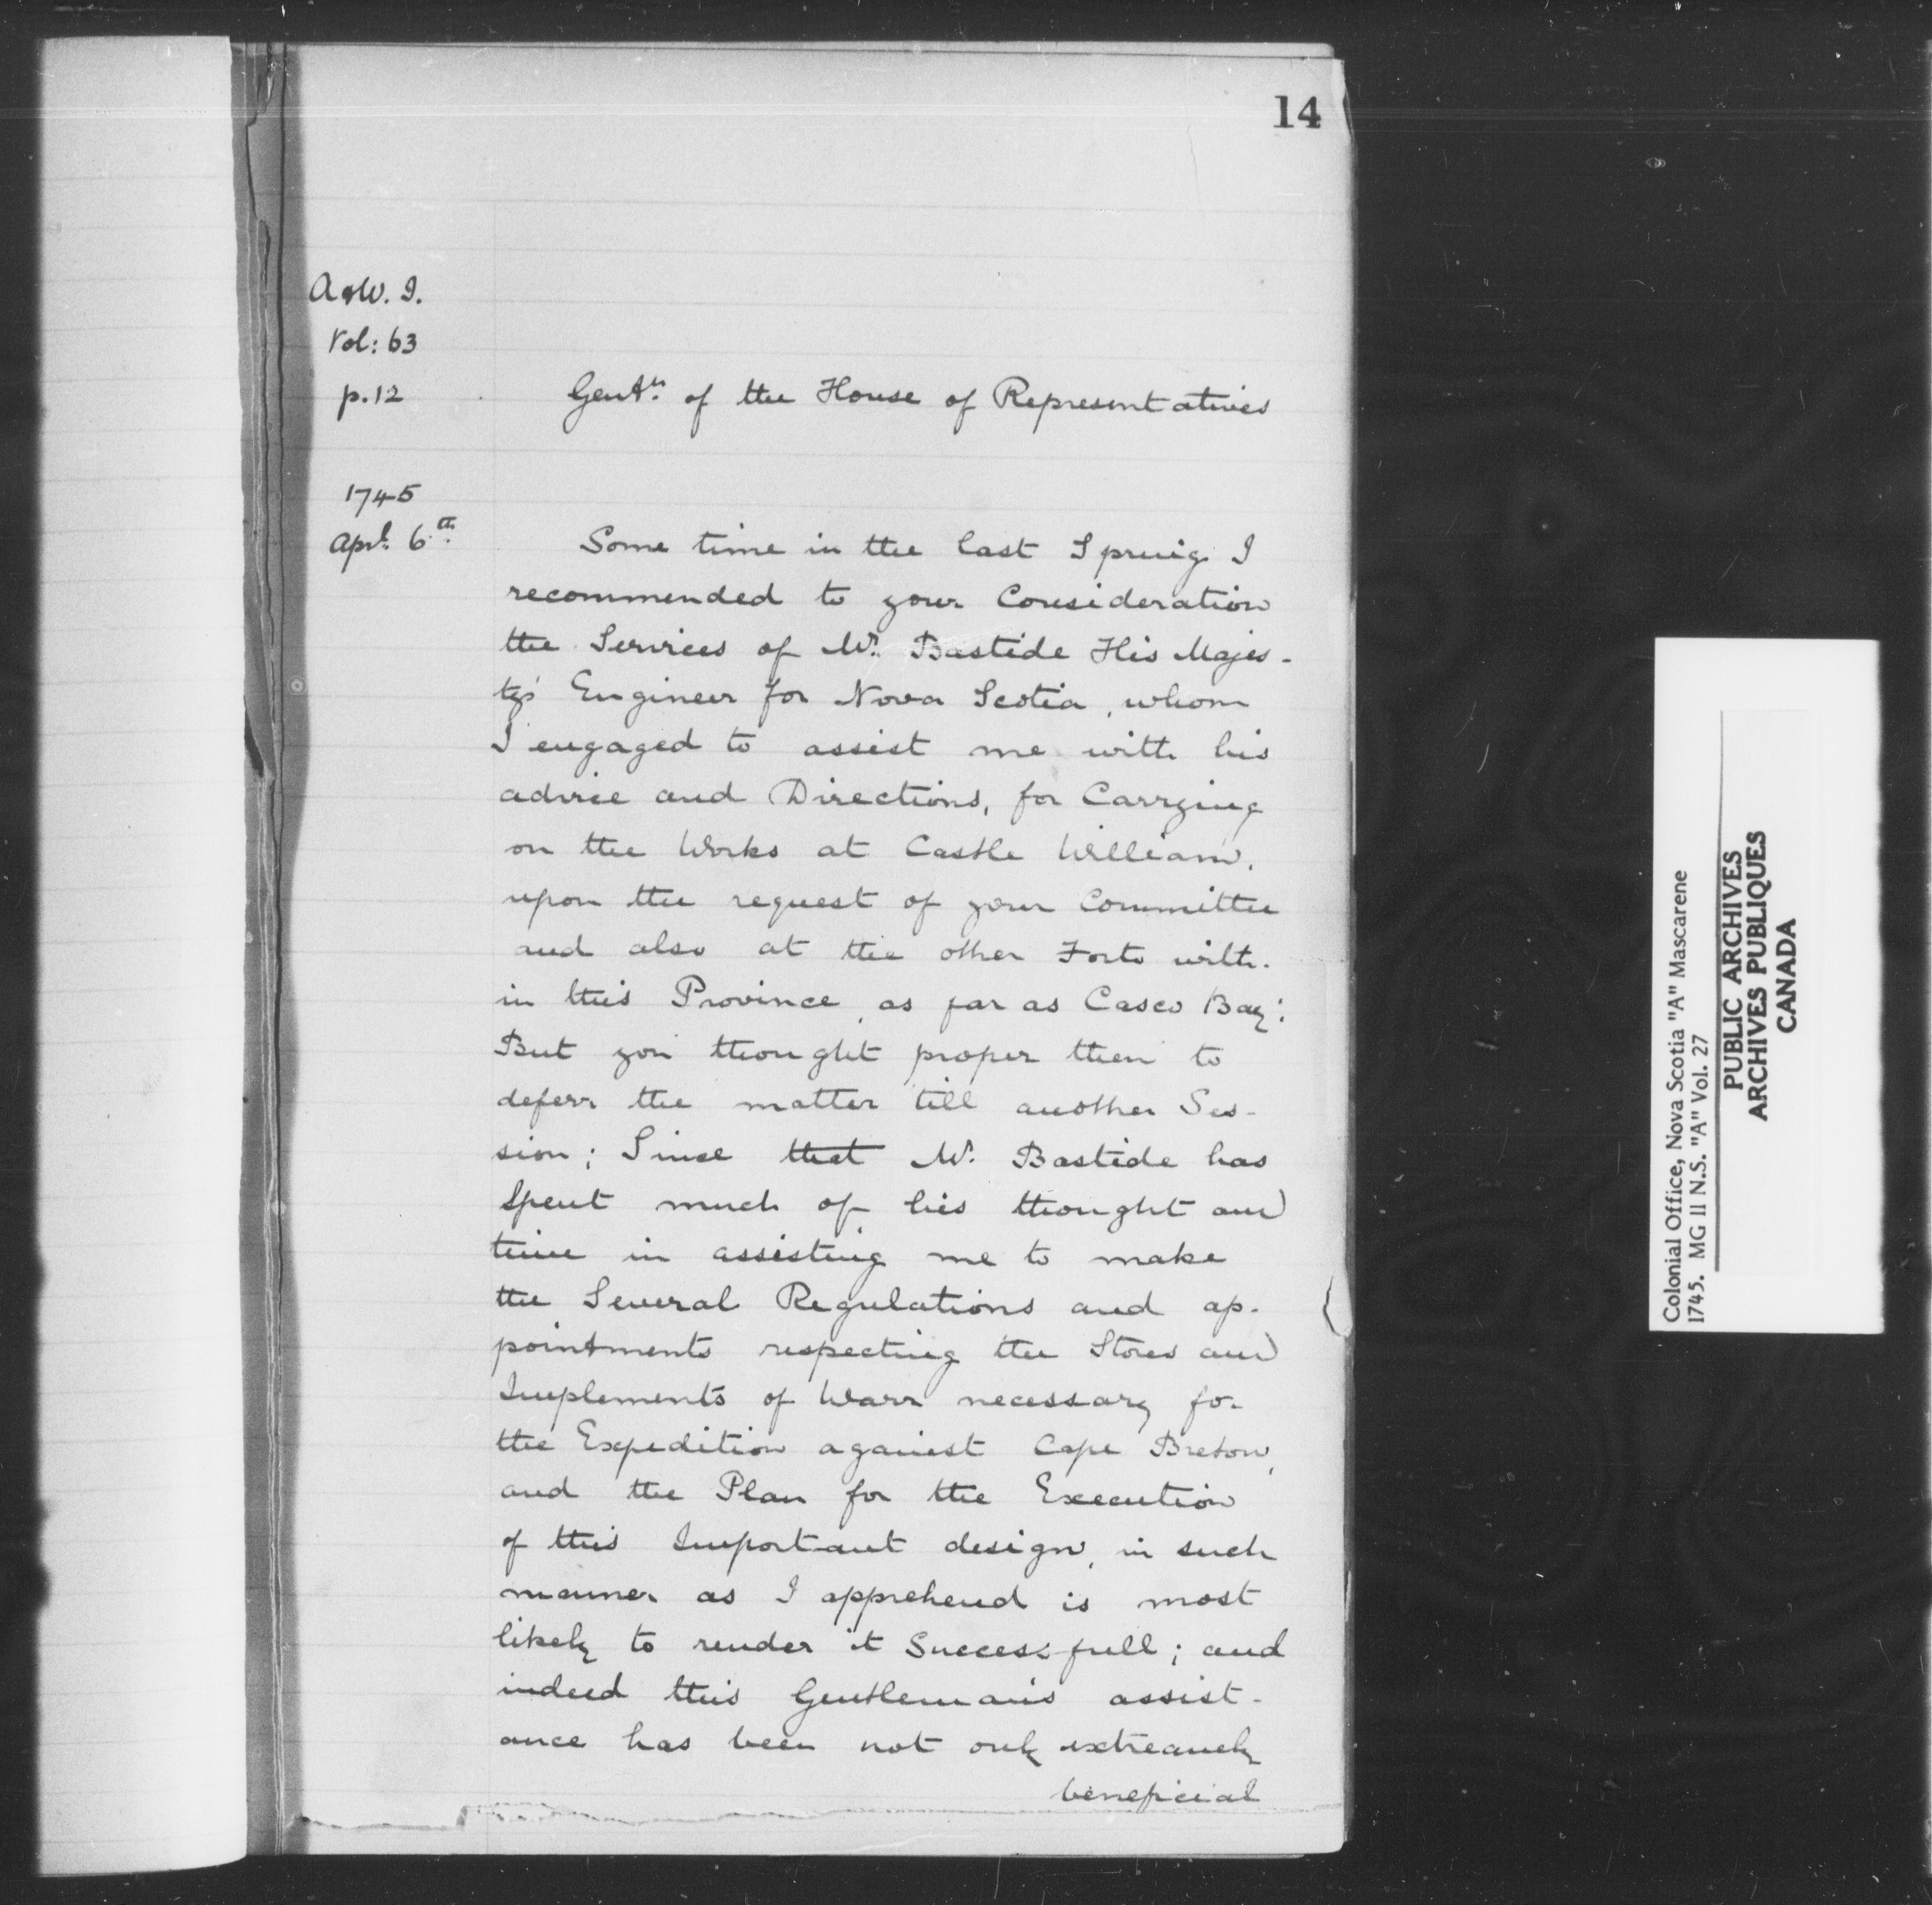 14
A & W. I.
Vol: 63
p. 12
Gentn. of the House of Representatives
1745
Apl. 6th.
Some time in the last Spring I
recommended to your Consideration
the Services of Mr. Bastide His Majes-
ty's Engineer for Nova Scotia, whom
I engaged to assist me with his
advice and Directions, for Carrying
on the Works at Castle William,
upon the request of your Committee
and also at the other Forts with-
in this Province, as far as Casco Bay:
But you thought proper then to
deferr the matter till another Ses-
sion; Since that Mr. Bastide has
Spent much of his thought and
time in assisting me to make
the Several Regulations and ap-
pointments respecting the Stores and
Implements of Warr necessary for
the Expedition against Cape Breton,
and the Plan for the Execution
of this Important design, in such
manner as I apprehend is most
likely to render it Successfull; and
indeed this Gentleman's assist-
ance has been not only extreamely
beneficial
Colonial Office, Nova Scotia "A" Mascarene
1745. MG II N.S. "A" Vol. 27
PUBLIC ARCHIVES
ARCHIVES PUBLIQUES
CANADA